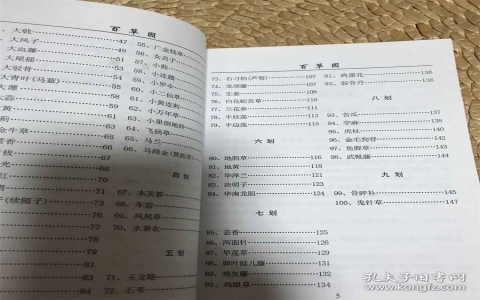 百草园
大戟
大风子 47
大血藤 49
大尾摇 50
大驳骨
大青叶(马蓝)
大蒜
金牛草 65
茴香 66
68
70
71
(续随子) 73
75
76
79
83
84
55、广金钱草
56、女贞子
57、小蓟
58、小连翘
59、小罗伞
60、小二仙草
61、小黄连刺
62、小万年草
63、小果倒地铃
64、飞扬草
65、马兰
66、马蹄金(黄胆草)
四划
67、木芙蓉
68、车前
69、凤尾草
70、水蓑衣
五划
71、玉龙鞭
72、石苇
百草园
73、石刁柏(芦笋) 107
74、龙须藤 108
75、生姜 109
76、白花蛇舌草 110
77、兰花参 111
78、半枝莲 113
79、半边莲 114
六划
80、地胆草 116
81、地黄 118
82、华泽兰 121
83、决明子 123
84、华南龙胆 124
七划
85、芸香 125
86、两面针 126
87、旱莲草 127
88、卵叶娃儿藤 128
89、鸡矢藤 129
90、鸡眼草 131
91、鸡蛋花
92、驳骨丹 136
八划
93、苦瓜 136
94、苧麻 138
95、虎杖 139
96、金毛狗脊 141
97、鱼腥草 142
98、武靴藤 143
九划
99、骨碎补 144
100、鬼针草 147
5
孔夫子旧书网